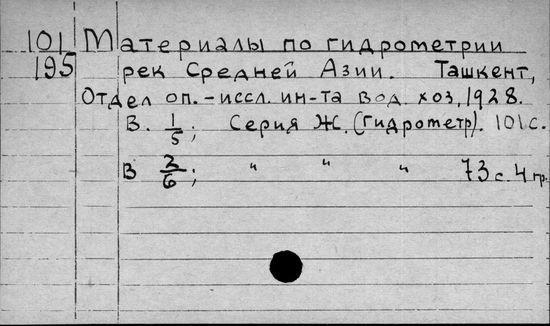 101 Материалы по гидрометрии
195 рек Средней Азии. Ташкент,
Отдел оп.-иссл. ин-та вод. хоз, 1928.
В. 1/5; Серия Ж. (гидрометр). 101 с.
В 2/6; " " " 73 с. 4 гр.